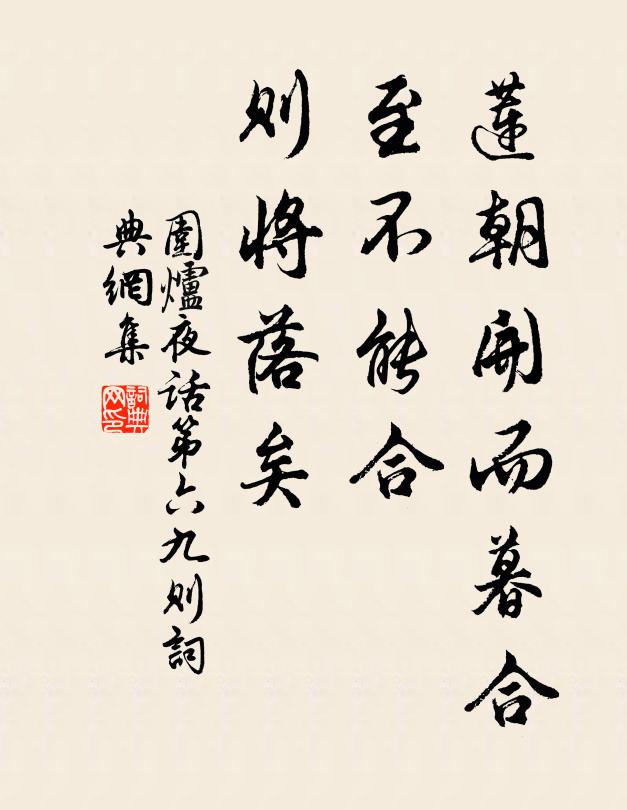 蓮朝開而暮合
至不能合
則將落矣
圍爐夜話第六九則詞
典網集
詞典网印